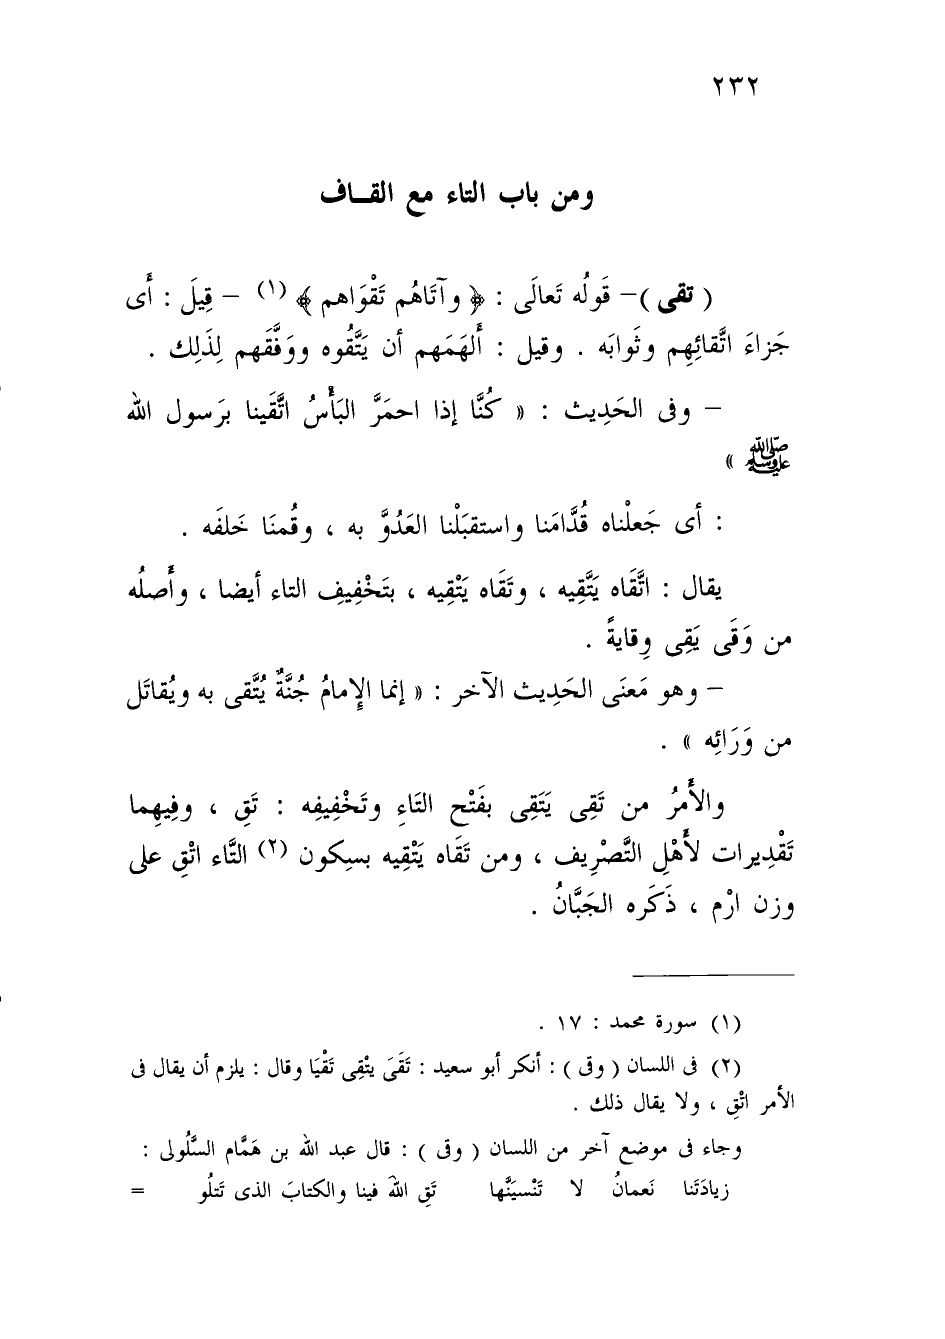 ٢٣٢
ومن باب التاء مع القـاف
( تقى )– قَولُه تَعالَى : ﴿ وآتَاهُم تَقْوَاهم ﴾ (١) – قِيلَ : أَى
جَزاءَ اتَّقائِهِم وثَوابَه . وقيل : أَلهَمَهم أن يَتَّقُوه ووَفَّقَهم لِذَلِك .
– وفى الحَدِيث : « كُنَّا إذا احمَرَّ البَأْسُ اتَّقَينا برَسول الله
ﷺ »
: أى جَعلْناه قُدَّامَنا واستقبَلْنا العَدُوَّ به ، وقُمنَا خَلفَه .
يقال : اتَّقَاه يَتَّقِيه ، وتَقَاه يَتْقِيه ، بتَخْفِيفِ التاء أيضا ، وأَصلُه
من وَقَى يَقِى وِقايةً .
– وهو مَعنَى الحَدِيث الآخر : « إنما الإِمامُ جُنَّةٌ يُتَّقى به ويُقاتَل
من وَرَائِه » .
والأَمرُ من تَقِى يَتَقِى بفَتْح التَاءِ وتَخْفِيفِه : تَقِ ، وفِيهِما
تَقْدِيرات لأَهْلِ التَّصْرِيف ، ومن تَقَاه يَتْقِيه بسِكون (٢) التَّاء اتْقِ على
وزن ارْم ، ذَكَره الجَبَّانُ .
(١) سورة محمد : ١٧ .
(٢) فى اللسان ( وقى ) : أنكر أبو سعيد : تَقَىَ يتْقِى تَقْيَا وقال : يلزم أن يقال فى
الأمر اتْقِ ، ولا يقال ذلك .
وجاء فى موضع آخر من اللسان ( وقى ) : قال عبد الله بن هَمَّام السَّلُولى :
زيادَتَنا نَعمانُ لا تَنْسيَنَّها تَقِ اللهَ فينا والكتابَ الذى تَتلُو =